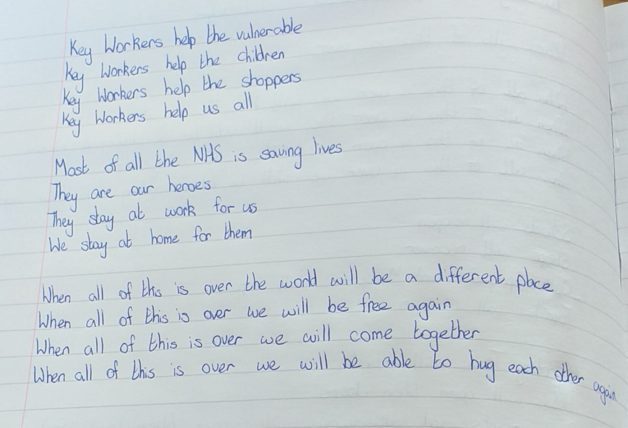 Key Workers help the vulnerable
Key Workers help the children
Key Workers help the shoppers
Key Workers help us all
Most of all the NHS is saving lives
They are our heroes
They stay at work for us
We stay at home for them
When all of this is over the world will be a different place
When all of this is over we will be free again
When all of this is over we will come together
When all of this is over we will be able to hug each other again